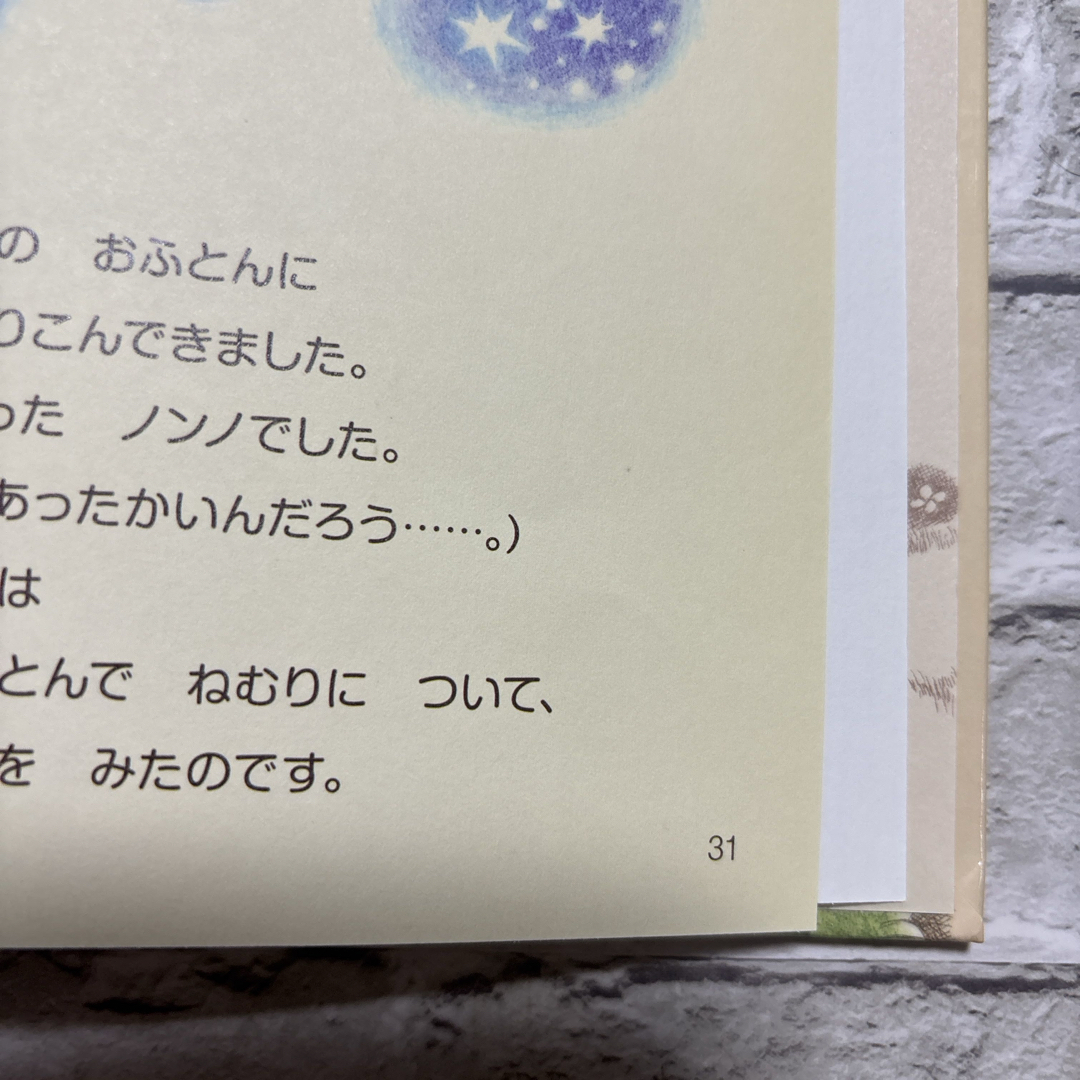 の　おふとんに
りこんできました。
った　ノンノでした。
あったかいんだろう……。)
は
とんで　ねむりに　ついて、
を　みたのです。
31